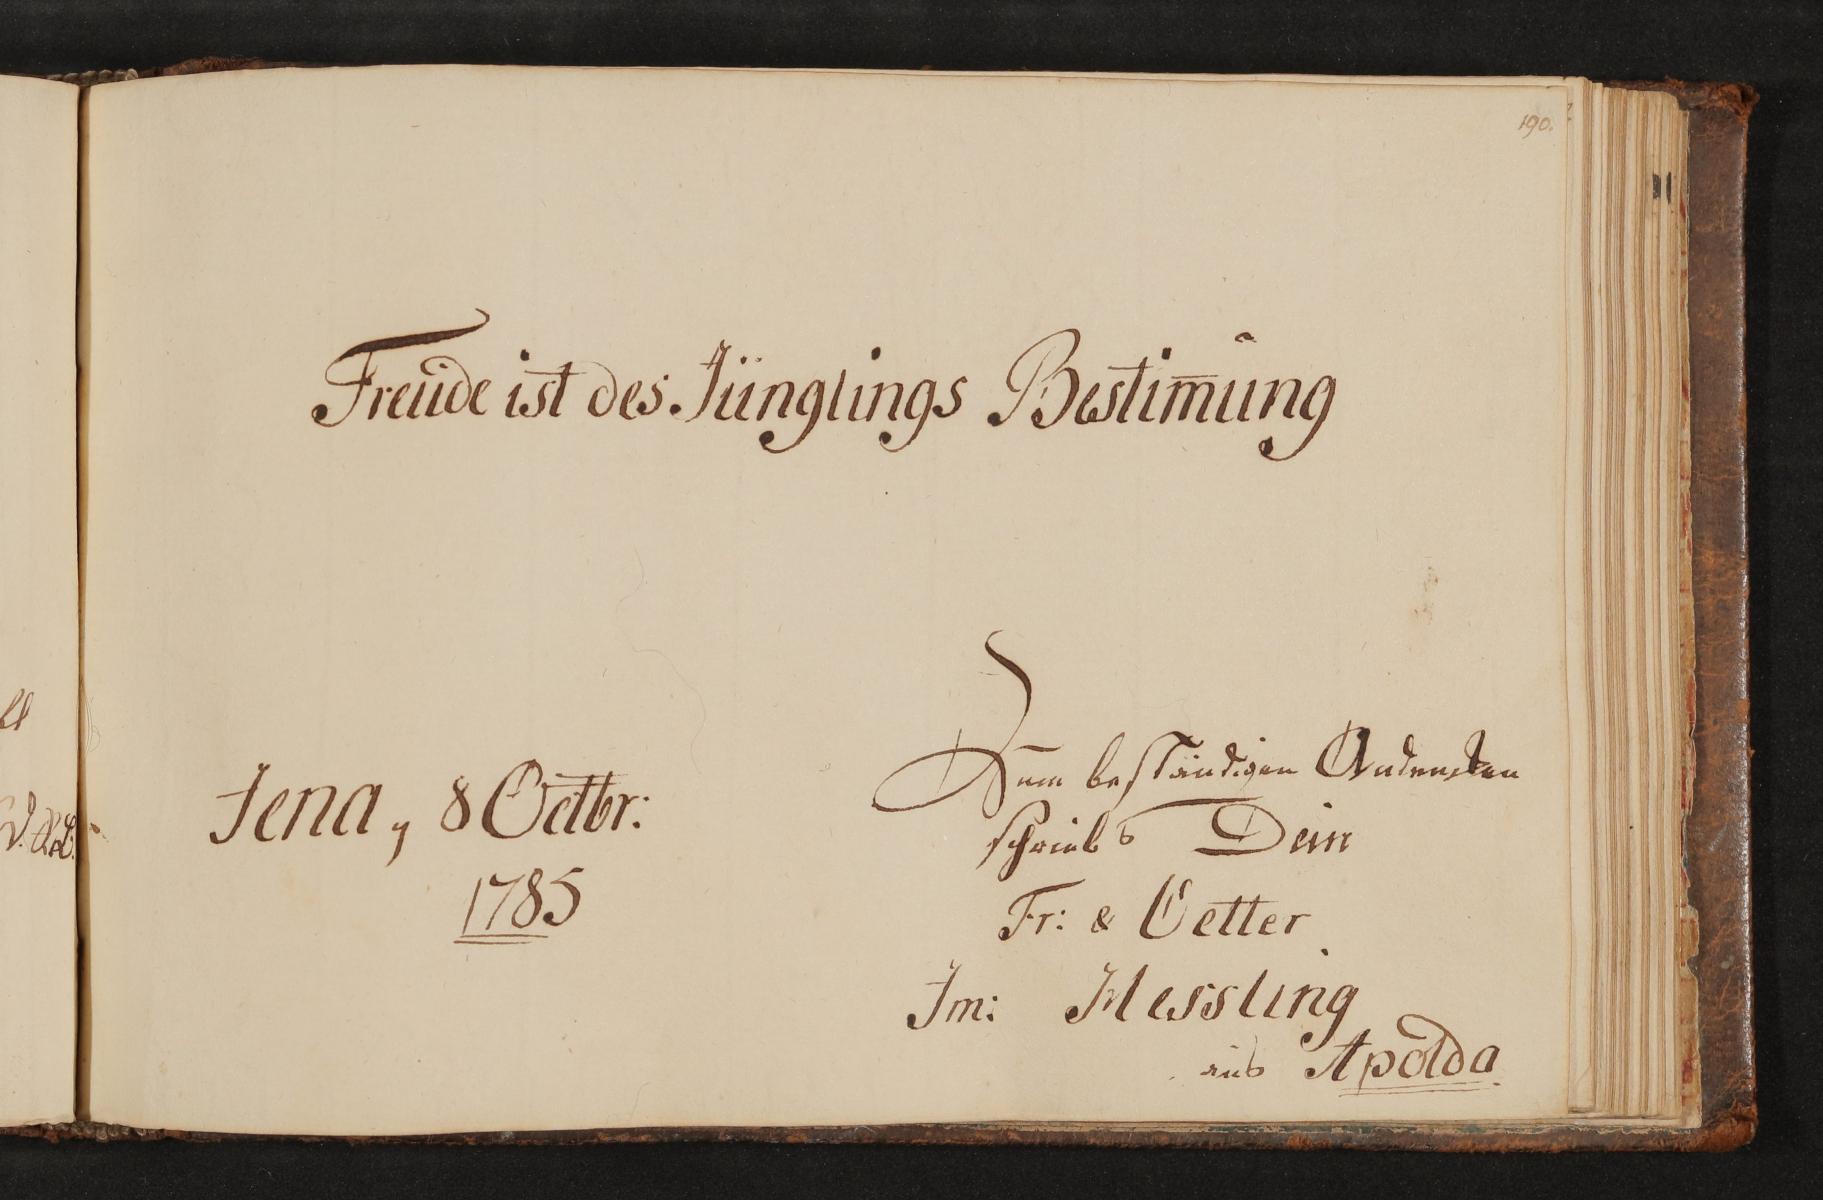 190.
Freude ist des Jünglings Bestim̄ung
Jena, 8 Octbr:
1785
Zum beständigen Andencken
schriebs Dein
Fr: & Vetter
Im: Hessling
aus Apolda